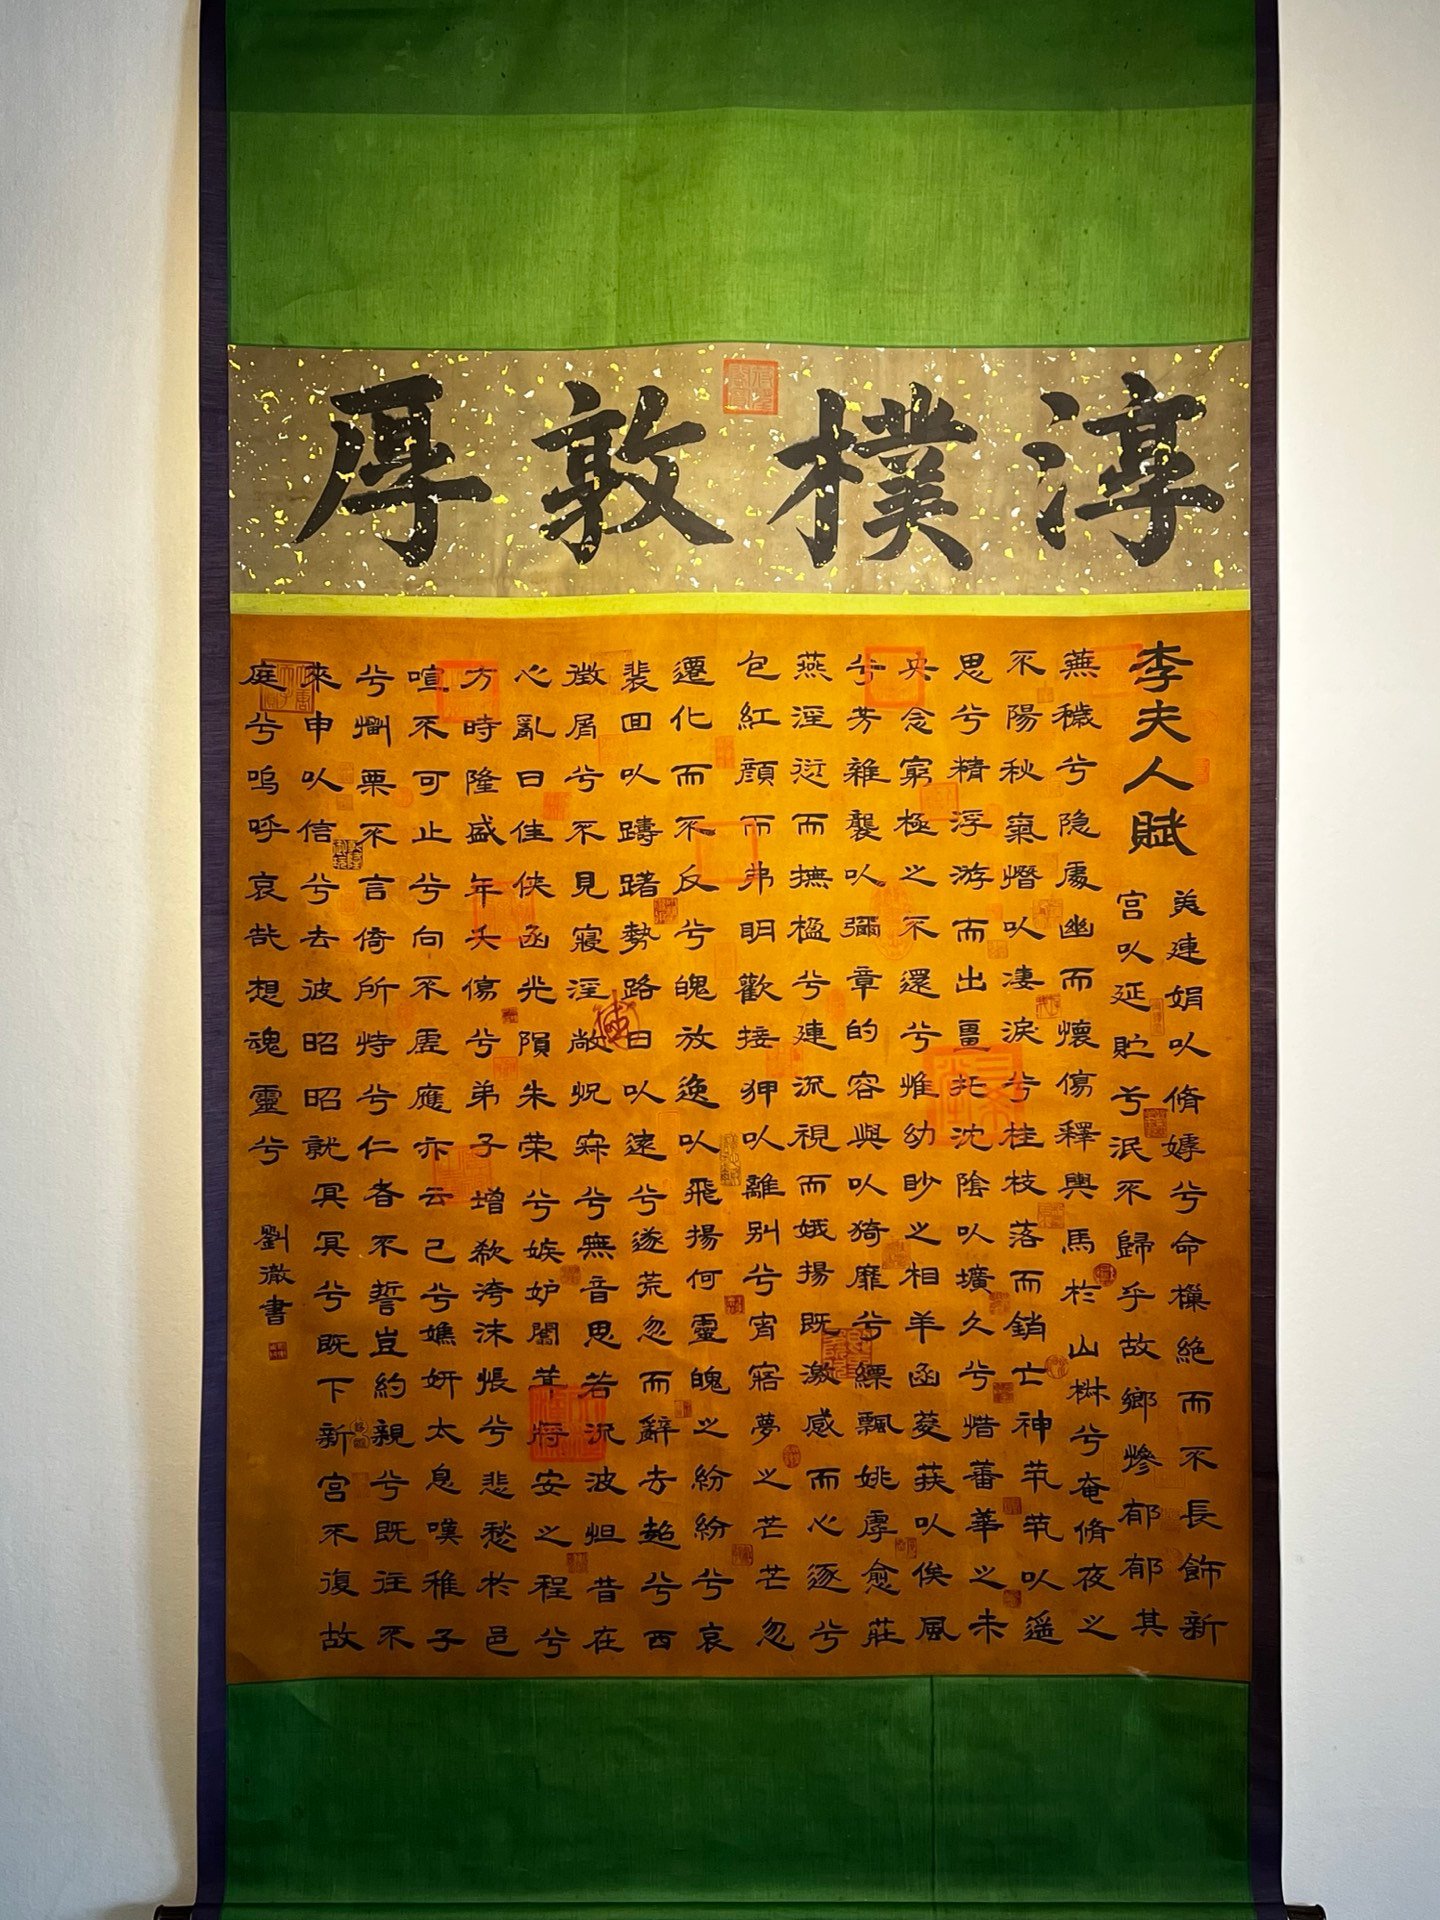 淳樸敦厚
李夫人賦
美連娟以脩嫮兮命樔絕而不長飾新
宮以延貯兮泯不歸乎故鄉慘郁郁其
蕪穢兮隱處幽而懷傷釋輿馬於山椒兮奄脩夜之
不陽秋氣憯以淒淚兮桂枝落而銷亡神煢煢以遙
思兮精浮游而出畺託沈陰以壙久兮惜蕃華之未
央念窮極之不還兮惟幼眇之相羊函菱荴以俟風
兮芳雜襲以彌章的容與以猗靡兮縹飄姚虖愈莊
燕淫衍而撫楹兮連流視而娥揚既激感而心逐兮
包紅顏而弗明歡接狎以離別兮宵寤夢之芒芒忽
遷化而不反兮魄放逸以飛揚何靈魄之紛紛兮哀
裴回以躊躇勢路日以遠兮遂荒忽而辭去超兮西
徵屑兮不見寖淫敞怳寂兮無音思若流波怛昔在
心亂曰佳俠函光隕朱榮兮嫉妒闟茸將安之程兮
方時隆盛年夭傷兮弟子增欷洿沫悵兮悲愁於邑
喧不可止兮向不虛應亦云己兮嫶妍太息嘆稚子
兮懰栗不言倚所恃兮仁者不誓豈約親兮既往不
來申以信兮去彼昭昭就冥冥兮既下新宮不復故
庭兮嗚呼哀哉想魂靈兮
劉徹書